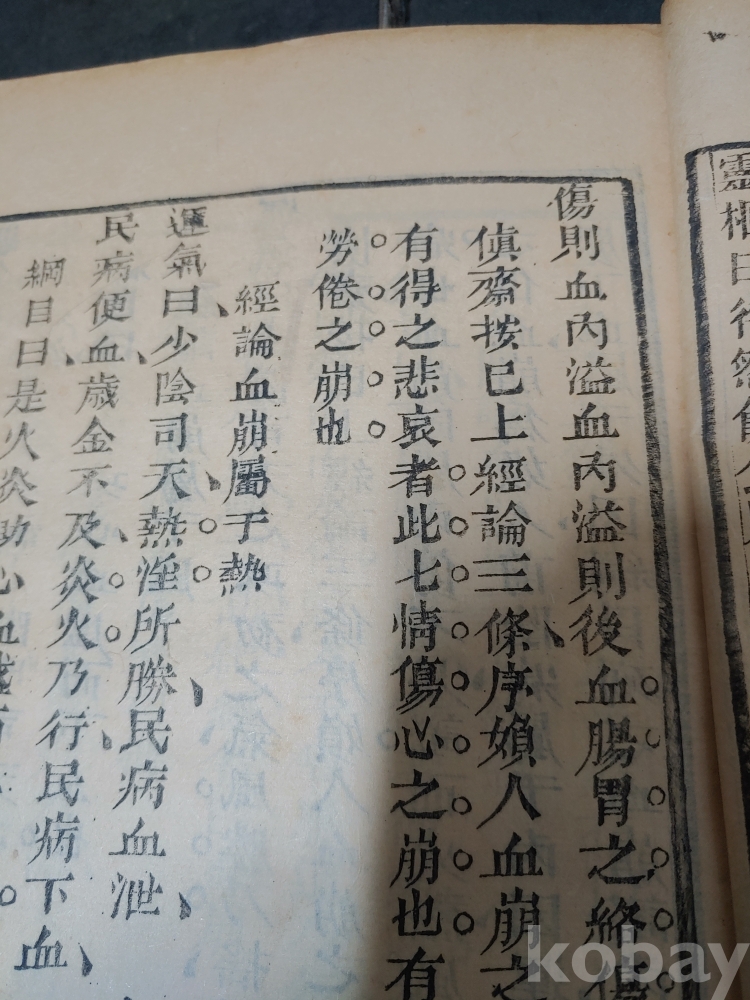 靈樞曰
傷則血內溢血內溢則後血腸胃之絡傷
慎齋按已上經論三條序婦人血崩之
有得之悲哀者此七情傷心之崩也有
勞倦之崩也
經論血崩屬于熱
運氣曰少陰司天熱淫所勝民病血泄
民病便血歲金不及炎火乃行民病下血
綱目曰是火炎助心血盛而
kobay